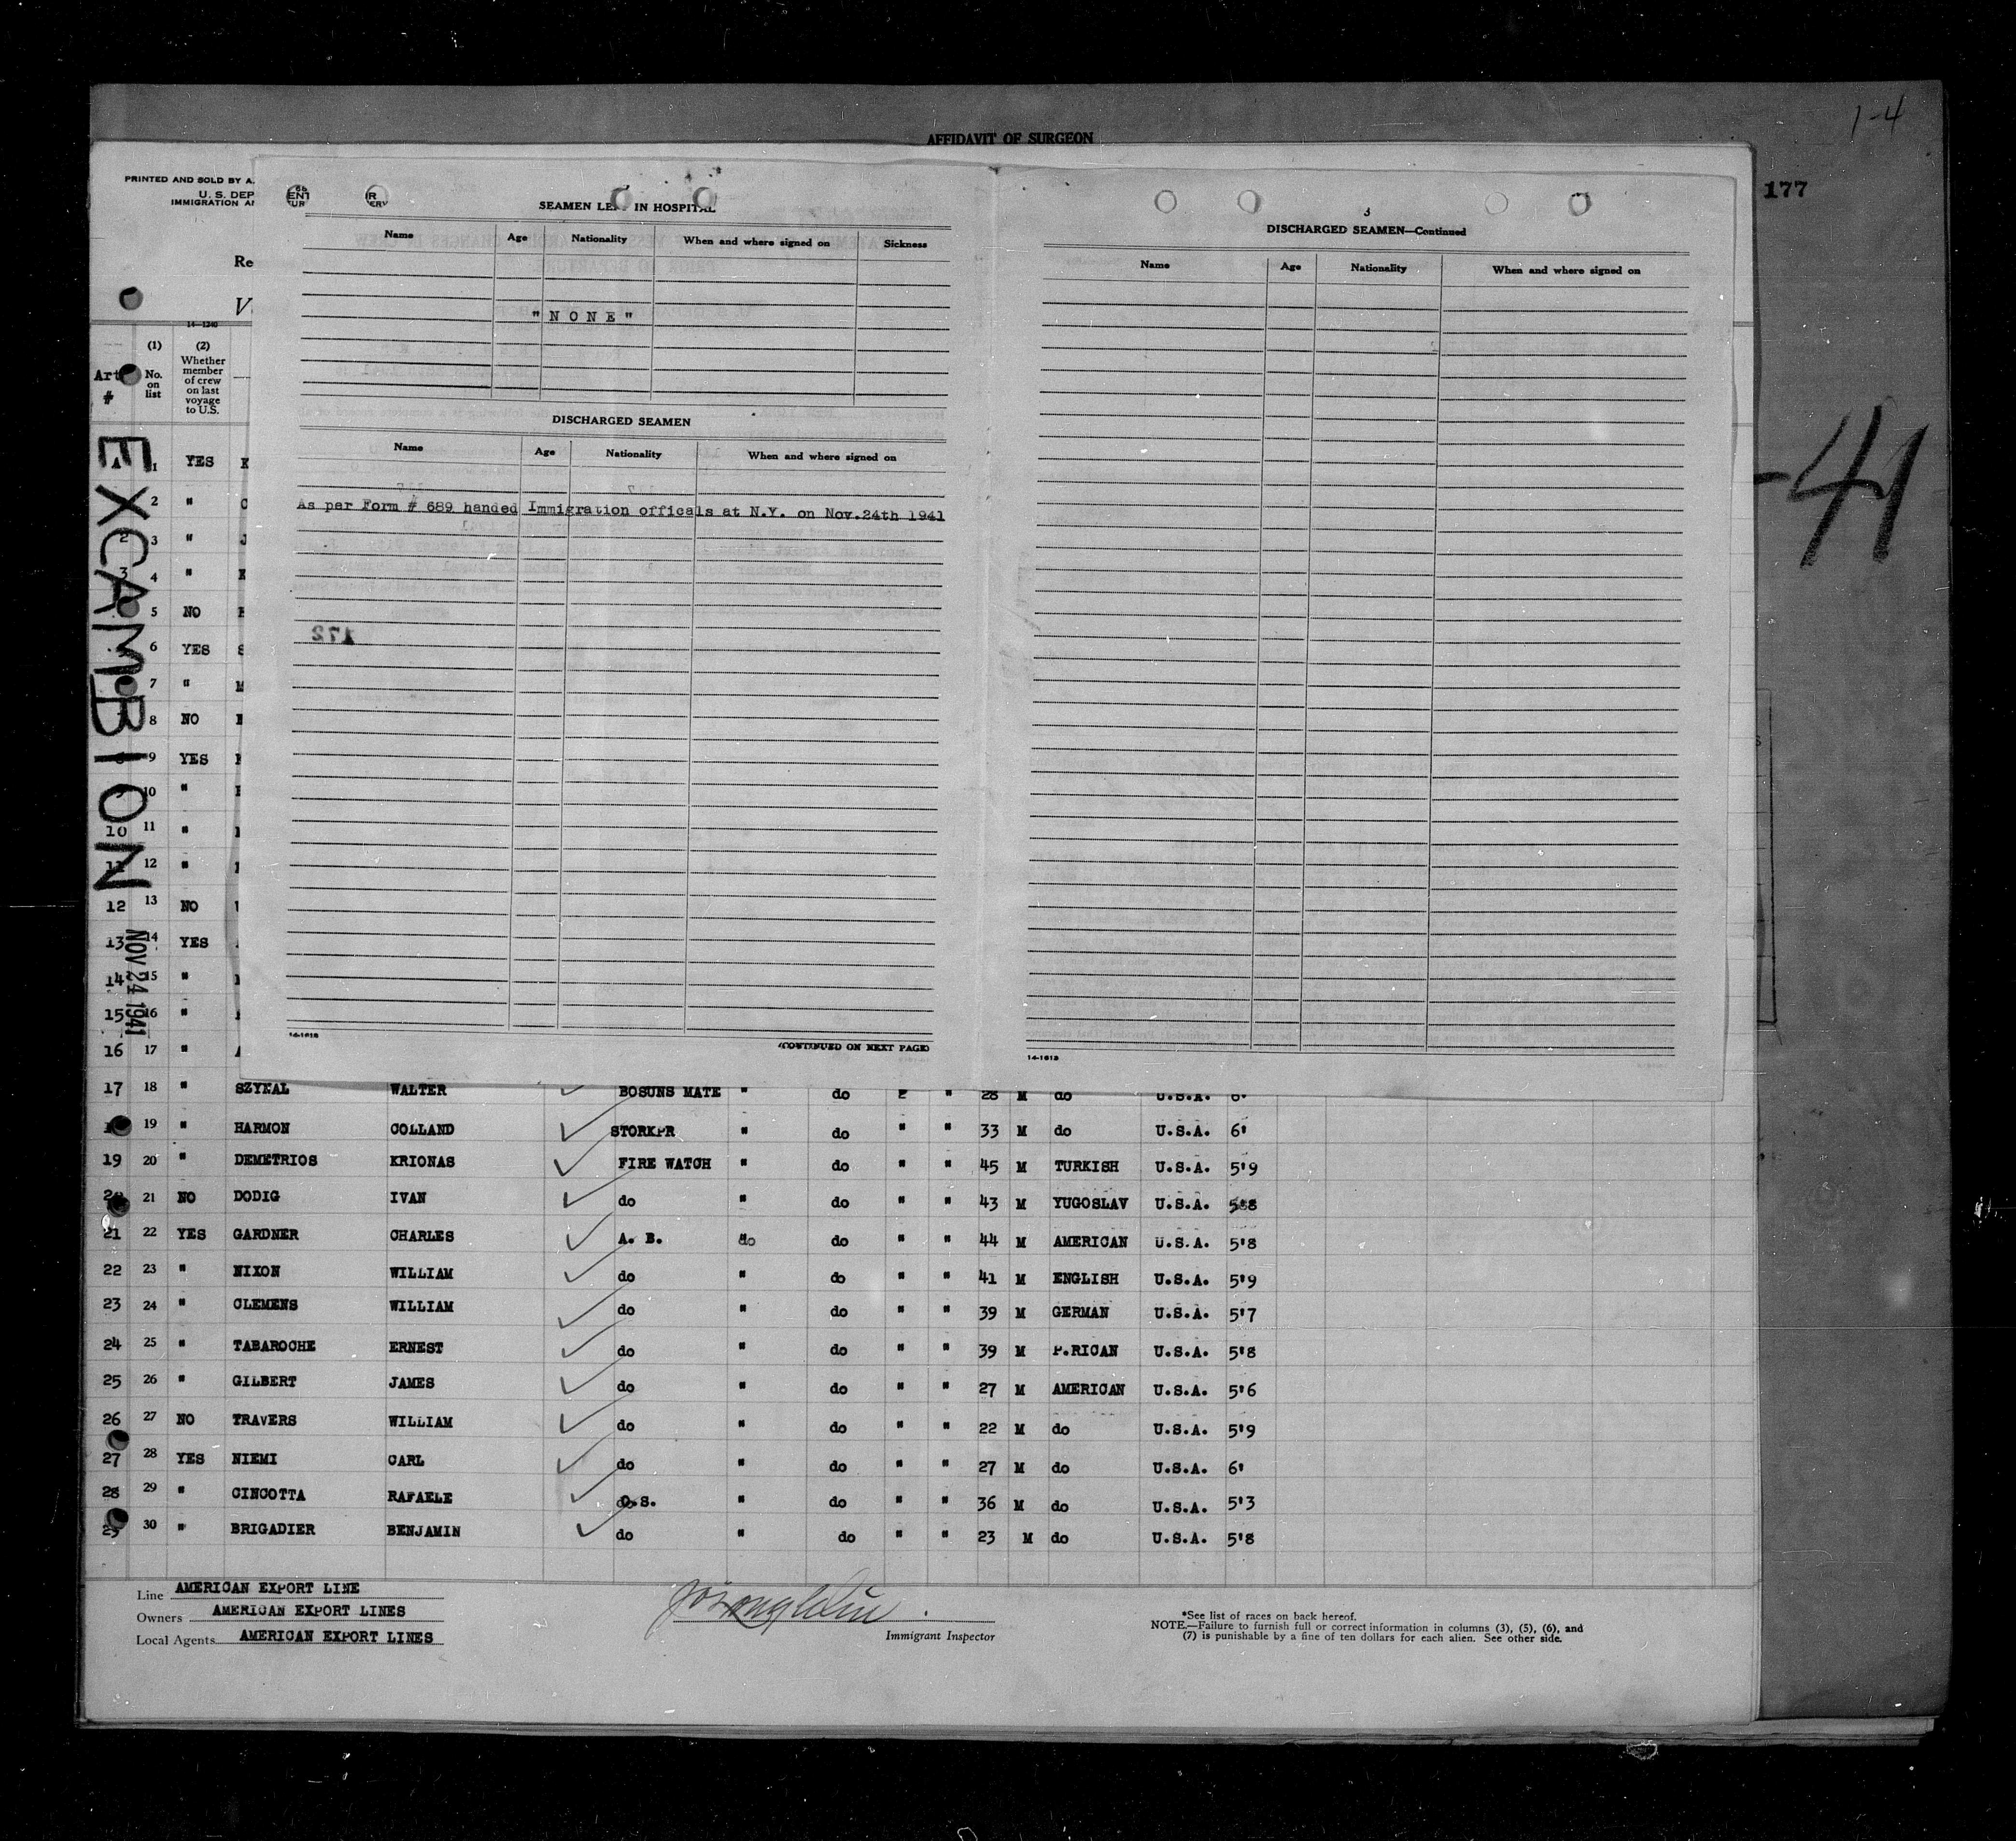 1-4
AFFIDAVIT OF SURGEON
177
-41
PRINTED AND SOLD BY A.
U. S. DEP
IMMIGRATION AN
Re
V
14-1240
Art
#
(1)
No.
on
list
(2)
Whether
member
of crew
on last
voyage
to U.S.
EXCAMBION
NOV 24 1941
SEAMEN LEFT IN HOSPITAL
Name Age Nationality When and where signed on Sickness
"NONE"
DISCHARGED SEAMEN
Name Age Nationality When and where signed on
As per Form # 689 handed Immigration officals at N.Y. on Nov.24th 1941
172
14-1618
(CONTINUED ON NEXT PAGE)
3
DISCHARGED SEAMEN—Continued
Name Age Nationality When and where signed on
14-1618
1 YES K
2 "
2 3 " J
3 4 "
5 NO
6 YES S
7 " M
8 NO
9 YES
10 "
10 11 "
11 12 "
12 13 NO
13 14 YES
14 15 "
15 16 "
16 17 "
17 18 " SZYKAL WALTER BOSUNS MATE " do " 28 M do U.S.A. 6'
19 " HARMON COLLAND STORKPR " do " " 33 M do U.S.A. 6'
19 20 " DEMETRIOS KRIONAS FIRE WATCH " do " " 45 M TURKISH U.S.A. 5'9
20 21 NO DODIG IVAN do " do " " 43 M YUGOSLAV U.S.A. 5'8
21 22 YES GARDNER CHARLES A. B. do do " " 44 M AMERICAN U.S.A. 5'8
22 23 " NIXON WILLIAM do " do " " 41 M ENGLISH U.S.A. 5'9
23 24 " CLEMENS WILLIAM do " do " " 39 M GERMAN U.S.A. 5'7
24 25 " TABAROCHE ERNEST do " do " " 39 M P.RICAN U.S.A. 5'8
25 26 " GILBERT JAMES do " do " " 27 M AMERICAN U.S.A. 5'6
26 27 NO TRAVERS WILLIAM do " do " " 22 M do U.S.A. 5'9
27 28 YES NIEMI CARL do " do " " 27 M do U.S.A. 6'
28 29 " CINCOTTA RAFAELE O.S. " do " " 36 M do U.S.A. 5'3
29 30 " BRIGADIER BENJAMIN do " do " " 23 M do U.S.A. 5'8
Line AMERICAN EXPORT LINE
Owners AMERICAN EXPORT LINES
Local Agents AMERICAN EXPORT LINES
Immigrant Inspector
*See list of races on back hereof.
NOTE.—Failure to furnish full or correct information in columns (3), (5), (6), and
(7) is punishable by a fine of ten dollars for each alien. See other side.